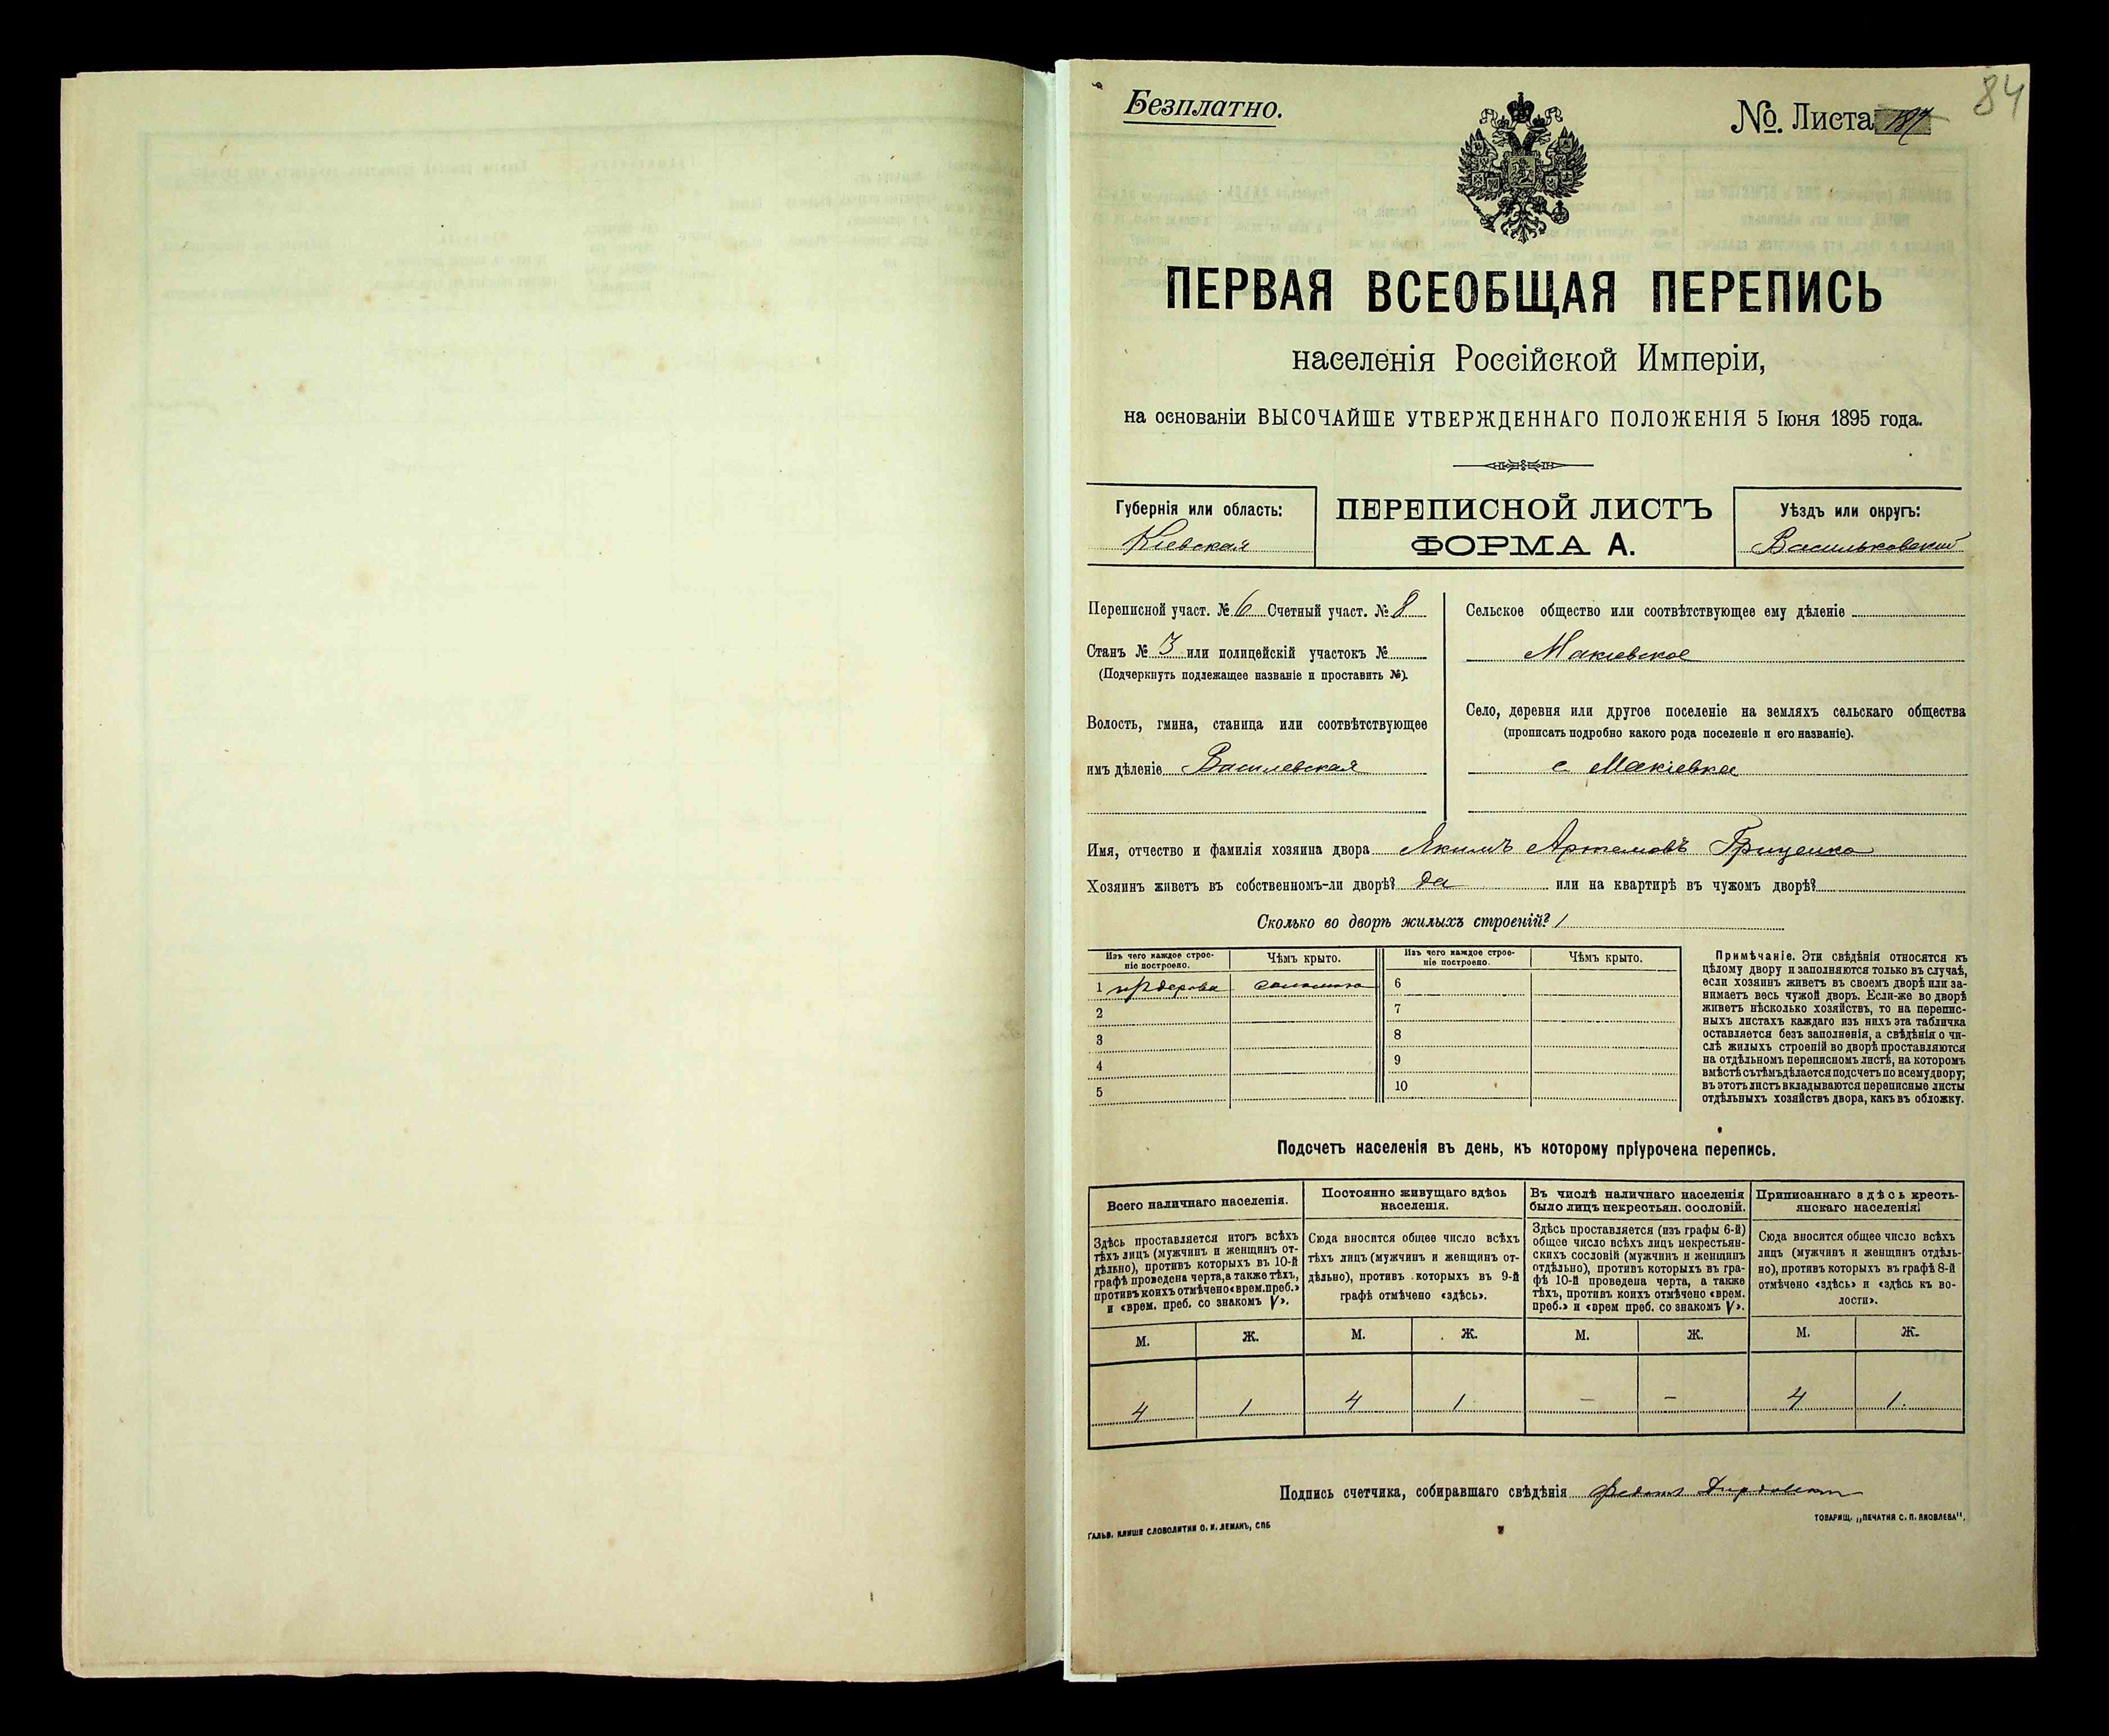 84
Безплатно.
№. Листа
ПЕРВАЯ ВСЕОБЩАЯ ПЕРЕПИСЬ
населенія Россійской Имперіи,
на основаніи ВЫСОЧАЙШЕ УТВЕРЖДЕННАГО ПОЛОЖЕНІЯ 5 Іюня 1895 года.
Губернія или область:
Кіевская
ПЕРЕПИСНОЙ ЛИСТЪ
ФОРМА А.
Уѣздъ или округъ:
Васильковскій
Переписной участ. № 6 Счетный участ. № 8
Станъ № 3 или полицейскій участокъ №
(Подчеркнуть подлежащее названіе и проставить №).
Волость, гмина, станица или соотвѣтствующее
имъ дѣленіе Василевская
Сельское общество или соотвѣтствующее ему дѣленіе
Макіевское
Село, деревня или другое поселеніе на земляхъ сельскаго общества
(прописать подробно какого рода поселеніе и его названіе).
с Макіевка
Имя, отчество и фамилія хозяина двора Якимъ Артемовъ Гриценко
Хозяинъ живетъ въ собственномъ-ли дворѣ? да или на квартирѣ въ чужомъ дворѣ?
Сколько во дворѣ жилыхъ строеній? 1
Изъ чего каждое строе-
ніе построено.
Чѣмъ крыто.
Изъ чего каждое строе-
ніе построено.
Чѣмъ крыто.
1 из дерева соломою 6
2 7
3 8
4 9
5 10
Примѣчаніе. Эти свѣдѣнія относятся къ
цѣлому двору и заполняются только въ случаѣ,
если хозяинъ живетъ въ своемъ дворѣ или за-
нимаетъ весь чужой дворъ. Если-же во дворѣ
живетъ нѣсколько хозяйствъ, то на перепис-
ныхъ листахъ каждаго изъ нихъ эта табличка
оставляется безъ заполненія, а свѣдѣнія о чи-
слѣ жилыхъ строеній во дворѣ проставляются
на отдѣльномъ переписномъ листѣ, на которомъ
вмѣстѣ съ тѣмъ дѣлается подсчетъ по всему двору;
въ этотъ листъ вкладываются переписные листы
отдѣльныхъ хозяйствъ двора, какъ въ обложку.
Подсчетъ населенія въ день, къ которому пріурочена перепись.
Всего наличнаго населенія.
Здѣсь проставляется итогъ всѣхъ
тѣхъ лицъ (мужчинъ и женщинъ от-
дѣльно), противъ которыхъ въ 10-й
графѣ проведена черта, а также тѣхъ,
противъ коихъ отмѣчено «врем. преб.»
и «врем. преб. со знакомъ V».
Постоянно живущаго здѣсь
населенія.
Сюда вносится общее число всѣхъ
тѣхъ лицъ (мужчинъ и женщинъ от-
дѣльно), противъ которыхъ въ 9-й
графѣ отмѣчено «здѣсь».
Въ числѣ наличнаго населенія
было лицъ некрестьян. сословій.
Здѣсь проставляется (изъ графы 6-й)
общее число всѣхъ лицъ некрестьян-
скихъ сословій (мужчинъ и женщинъ
отдѣльно), противъ которыхъ въ гра-
фѣ 10-й проведена черта, а также
тѣхъ, противъ коихъ отмѣчено «врем.
преб.» и «врем преб. со знакомъ V».
Приписаннаго здѣсь кресть-
янскаго населенія.
Сюда вносится общее число всѣхъ
лицъ (мужчинъ и женщинъ отдѣль-
но), противъ которыхъ въ графѣ 8-й
отмѣчено «здѣсь» и «здѣсь къ во-
лости».
М. Ж. М. Ж. М. Ж. М. Ж.
4 1 4 1 – – 4 1
Подпись счетчика, собиравшаго свѣдѣнія
ГАЛЬВ. КЛИШЕ СЛОВОЛИТНИ О. И. ЛЕМАНЪ, СПБ
ТОВАРИЩ. „ПЕЧАТНЯ С. П. ЯКОВЛЕВА".